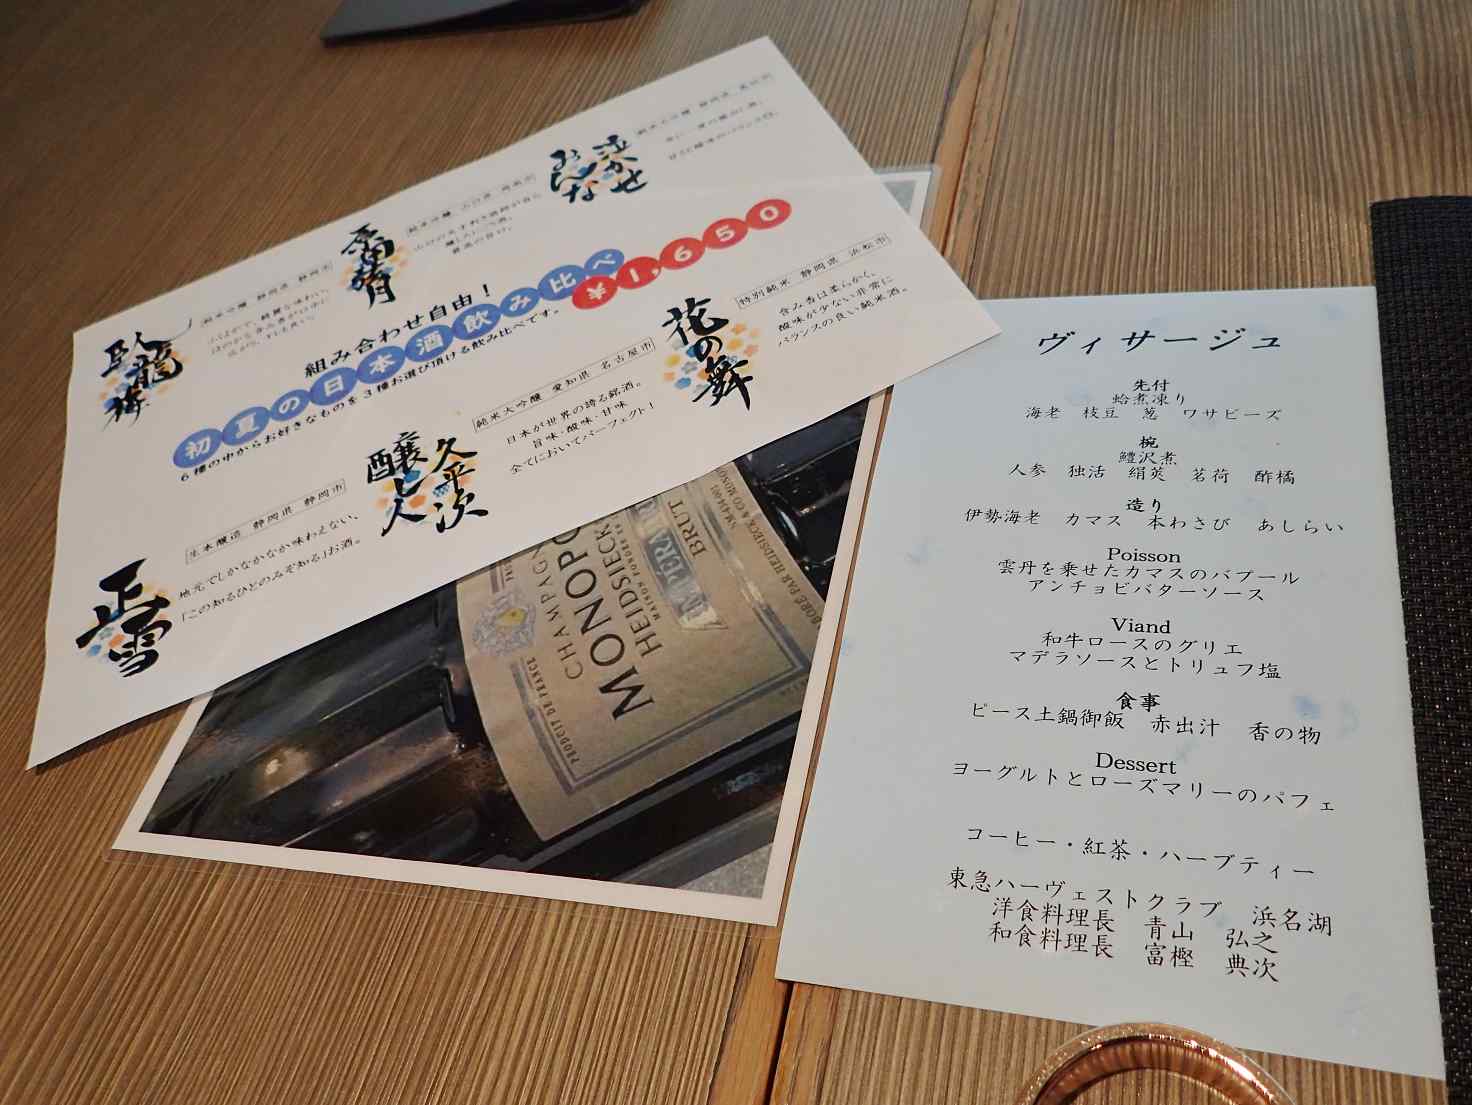 泣かせ
おんな
臥龍梅
組み合わせ自由！
初夏の日本酒飲み比べ
¥1,650
6種の中からお好きなものを3種お選び頂ける飲み比べです。
花の舞
特別純米 静岡県 浜松市
含み香は柔らかく、
酸味が少ない非常に
バランスの良い純米酒。
醸し人
久平次
純米大吟醸 愛知県 名古屋市
日本が世界の誇る銘酒。
旨味・酸味・甘味
全てにおいてパーフェクト！
正雪
生本醸造 静岡県 静岡市
地元でしかなかなか味わえない、
「この知るひとのみぞ知る」お酒。
CHAMPAGNE
MONOPO
HEIDSIECK
MAISON FONDÉE
IMPERA
BRUT
PRODUIT DE FRANCE
NM-434-002
ヴィサージュ
先付
蛤煮凍り
海老 枝豆 葱 ワサビーズ
椀
鱧沢煮
人参 独活 絹莢 茗荷 酢橘
造り
伊勢海老 カマス 本わさび あしらい
Poisson
雲丹を乗せたカマスのバプール
アンチョビバターソース
Viand
和牛ロースのグリエ
マデラソースとトリュフ塩
食事
ピース土鍋御飯 赤出汁 香の物
Dessert
ヨーグルトとローズマリーのパフェ
コーヒー・紅茶・ハーブティー
東急ハーヴェストクラブ 浜名湖
洋食料理長 青山 弘之
和食料理長 富樫 典次